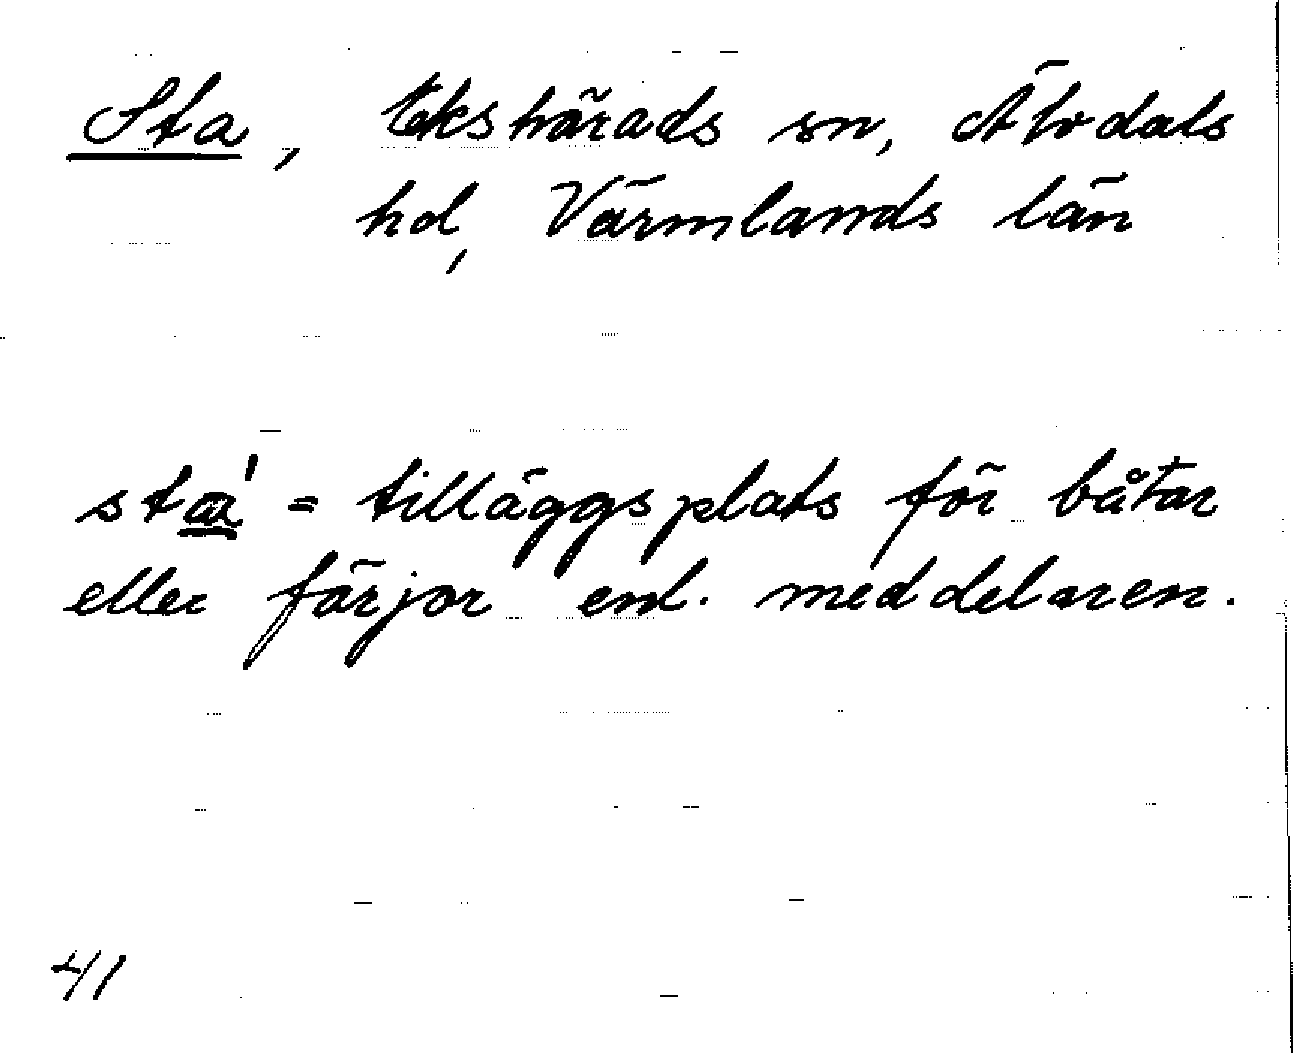 Sta, Ekshärads sn, Älvdals
hd, Värmlands län
sta' = tilläggsplats för båtar
eller färjor enl. meddelaren.
41